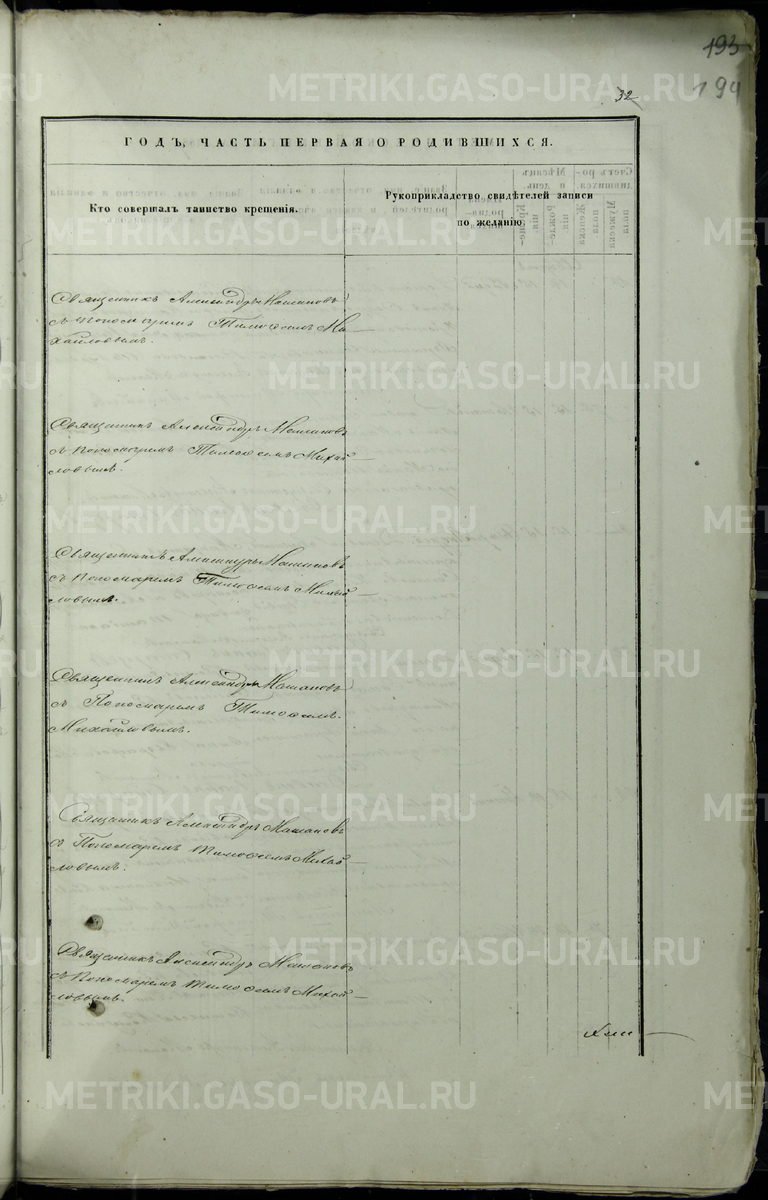 193
194
32
ГОДЪ, ЧАСТЬ ПЕРВАЯ О РОДИВШИХСЯ.
Кто совершалъ таинство крещенія.
Рукоприкладство свидѣтелей записи
по желанію.
Священникъ Александръ
съ Пономаремъ Тимофеемъ Ми
хайловымъ.
Священникъ Александръ
съ Пономаремъ Тимофеемъ Михай
ловымъ.
Священникъ Александръ Машановъ
съ Пономаремъ Тимофеемъ Михай
ловымъ.
Священникъ Александръ Машановъ
съ Пономаремъ Тимофеемъ
Михайловымъ.
Священникъ Александръ Машановъ
съ Пономаремъ Тимофеемъ Михай
ловымъ.
Священникъ Александръ Машановъ
съ Пономаремъ Тимофеемъ Михай
ловымъ.
METRIKI.GASO-URAL.RU